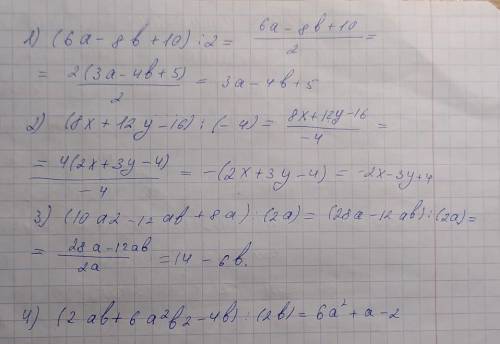 1) (6a - 8b + 10) : 2 = (6a - 8b + 10)/2 =
= 2(3a - 4b + 5)/2 = 3a - 4b + 5
2) (8x + 12y - 16) : (-4) = (8x + 12y - 16)/-4 =
= 4(2x + 3y - 4)/-4 = -(2x + 3y - 4) = -2x - 3y + 4
3) (10a2 - 12ab + 8a) : (2a) = (28a - 12ab) : (2a) =
= (28a - 12ab)/2a = 14 - 6b.
4) (2ab + 6a²b2 - 4b) : (2b) = 6a² + a - 2